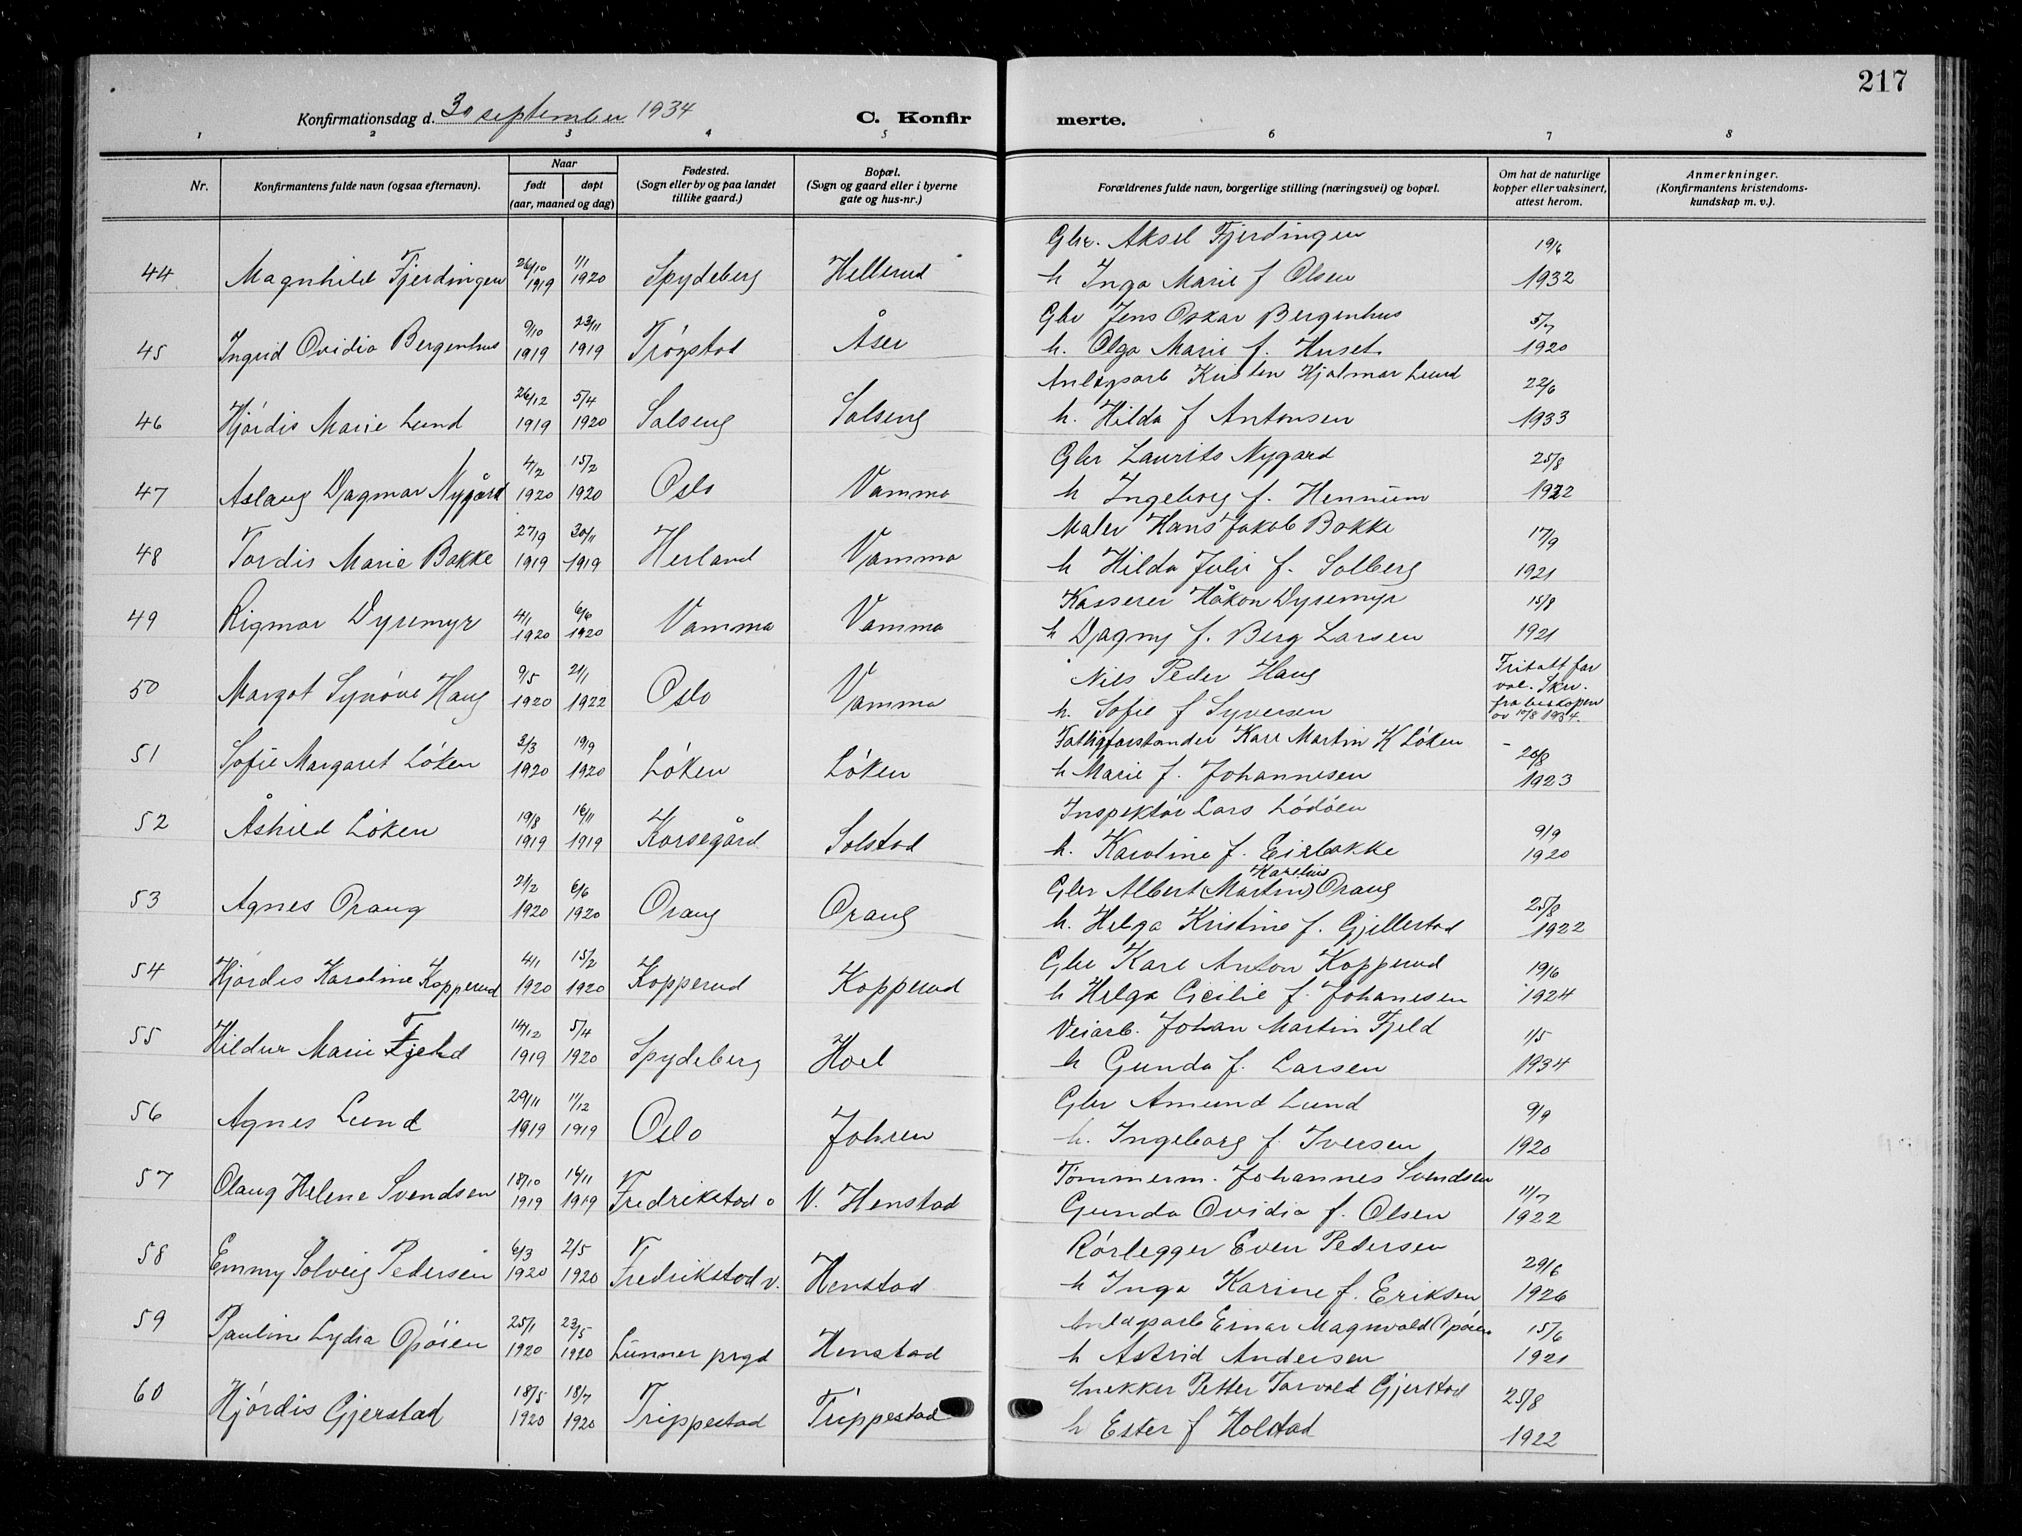 217
Konfirmationsdag d. 30 september 1934 C. Konfirmerte.
1 2 3 4 5 6 7 8
Nr. Konfirmantens fulde navn (ogsaa efternavn). Naar født døpt (aar, maaned og dag) Fødested. (Sogn eller by og paa landet tillike gaard.) Bopæl. (Sogn og gaard eller i byerne gate og hus-nr.) Forældrenes fulde navn, borgerlige stilling (næringsvei) og bopæl. Om hat de naturlige kopper eller vaksinert, attest herom. Anmerkninger. (Konfirmantens kristendoms-kundskap m. v.).
Gbr. Aksel Fjerdingen 19/6
44 Magnhild Fjerdingen 26/10 1919 1/1 1920 Spydeberg Hellerud h Inga Marie f Olsen 1932
Gbr Jens Oskar Bergenhus 5/7
45 Ingrid Ovidia Bergenhus 9/10 1919 23/11 1919 Trøgstad Åser h. Olga Marie f. Huset 1920
Anlegsarb Kristen Hjalmar Lund 22/6
46 Hjørdis Marie Lund 26/12 1919 5/4 1920 Solseng Solseng h. Hilda f Antonsen 1933
Gbr Laurits Nygard 25/8
47 Aslaug Dagmar Nygård 4/2 1920 15/2 1920 Oslo Vamma h Ingeborg f. Hennum 1922
Maler Hans Jakob Bakke 17/9
48 Tordis Marie Bakke 27/9 1919 30/11 1919 Herland Vamma h Hilda Julie f. Solberg 1921
Kasserer Håkon Dyremyr 15/8
49 Rigmor Dyremyr 4/1 1920 6/6 1920 Vamma Vamma h Dagny f. Berg Larsen 1921
Nils Peder Haug Fritatt for vac. Skr.
50 Margot Synøve Haug 9/5 1920 21/1 1922 Oslo Vamma h. Sofie f Syversen fra biskopen av 10/8 1934.
Fattigforstander Karl Martin K Løken 20/8
51 Sofie Margaret Løken 3/3 1920 19/9 1920 Løken Løken h Marie f. Johannesen 1923
Inspektør Lars Lødøen 9/9
52 Åshild Løken 19/8 1919 16/11 1919 Korsegård Solstad h. Karoline f. Eirbakke 1920
Karelius
Gbr Albert (Martin) Oraug 25/8
53 Agnes Oraug 21/2 1920 6/6 1920 Oraug Oraug h. Helga Kristine f. Gjellestad 1922
Gbr Karl Anton Kopperud 19/6
54 Hjørdis Karoline Kopperud 4/1 1920 15/2 1920 Kopperud Kopperud h Helga Cicilie f. Johanesen 1924
Veiarb. Johan Martin Fjeld 1/5
55 Hildur Marie Fjeld 14/12 1919 5/4 1920 Spydeberg Hoel h Gunda f. Larsen 1934
Gbr Amund Lund 9/9
56 Agnes Lund 29/11 1919 11/12 1919 Oslo Johren h. Ingeborg f. Iversen 1920
Tømmerm. Johannes Svendsen 11/7
57 Olaug Helene Svendsen 18/10 1919 16/11 1919 Fredrikstad o V. Henstad Gunda Ovidia f. Olsen 1922
Rørlegger Even Pedersen 29/6
58 Emmy Solveig Pedersen 6/3 1920 2/5 1920 Fredrikstad v. Henstad h Inga Karine f. Eriksen 1926
Anlegsarb Einar Magnvald Opøien 15/6
59 Pauline Lydia Opøien 25/1 1920 23/5 1920 Lunner prgd Henstad h Astrid Andersen 1921
Snekker Petter Torvald Gjerstad 25/8
60 Hjørdis Gjerstad 18/5 1920 18/7 1920 Trippestad Trippestad h Ester f Holstad 1922